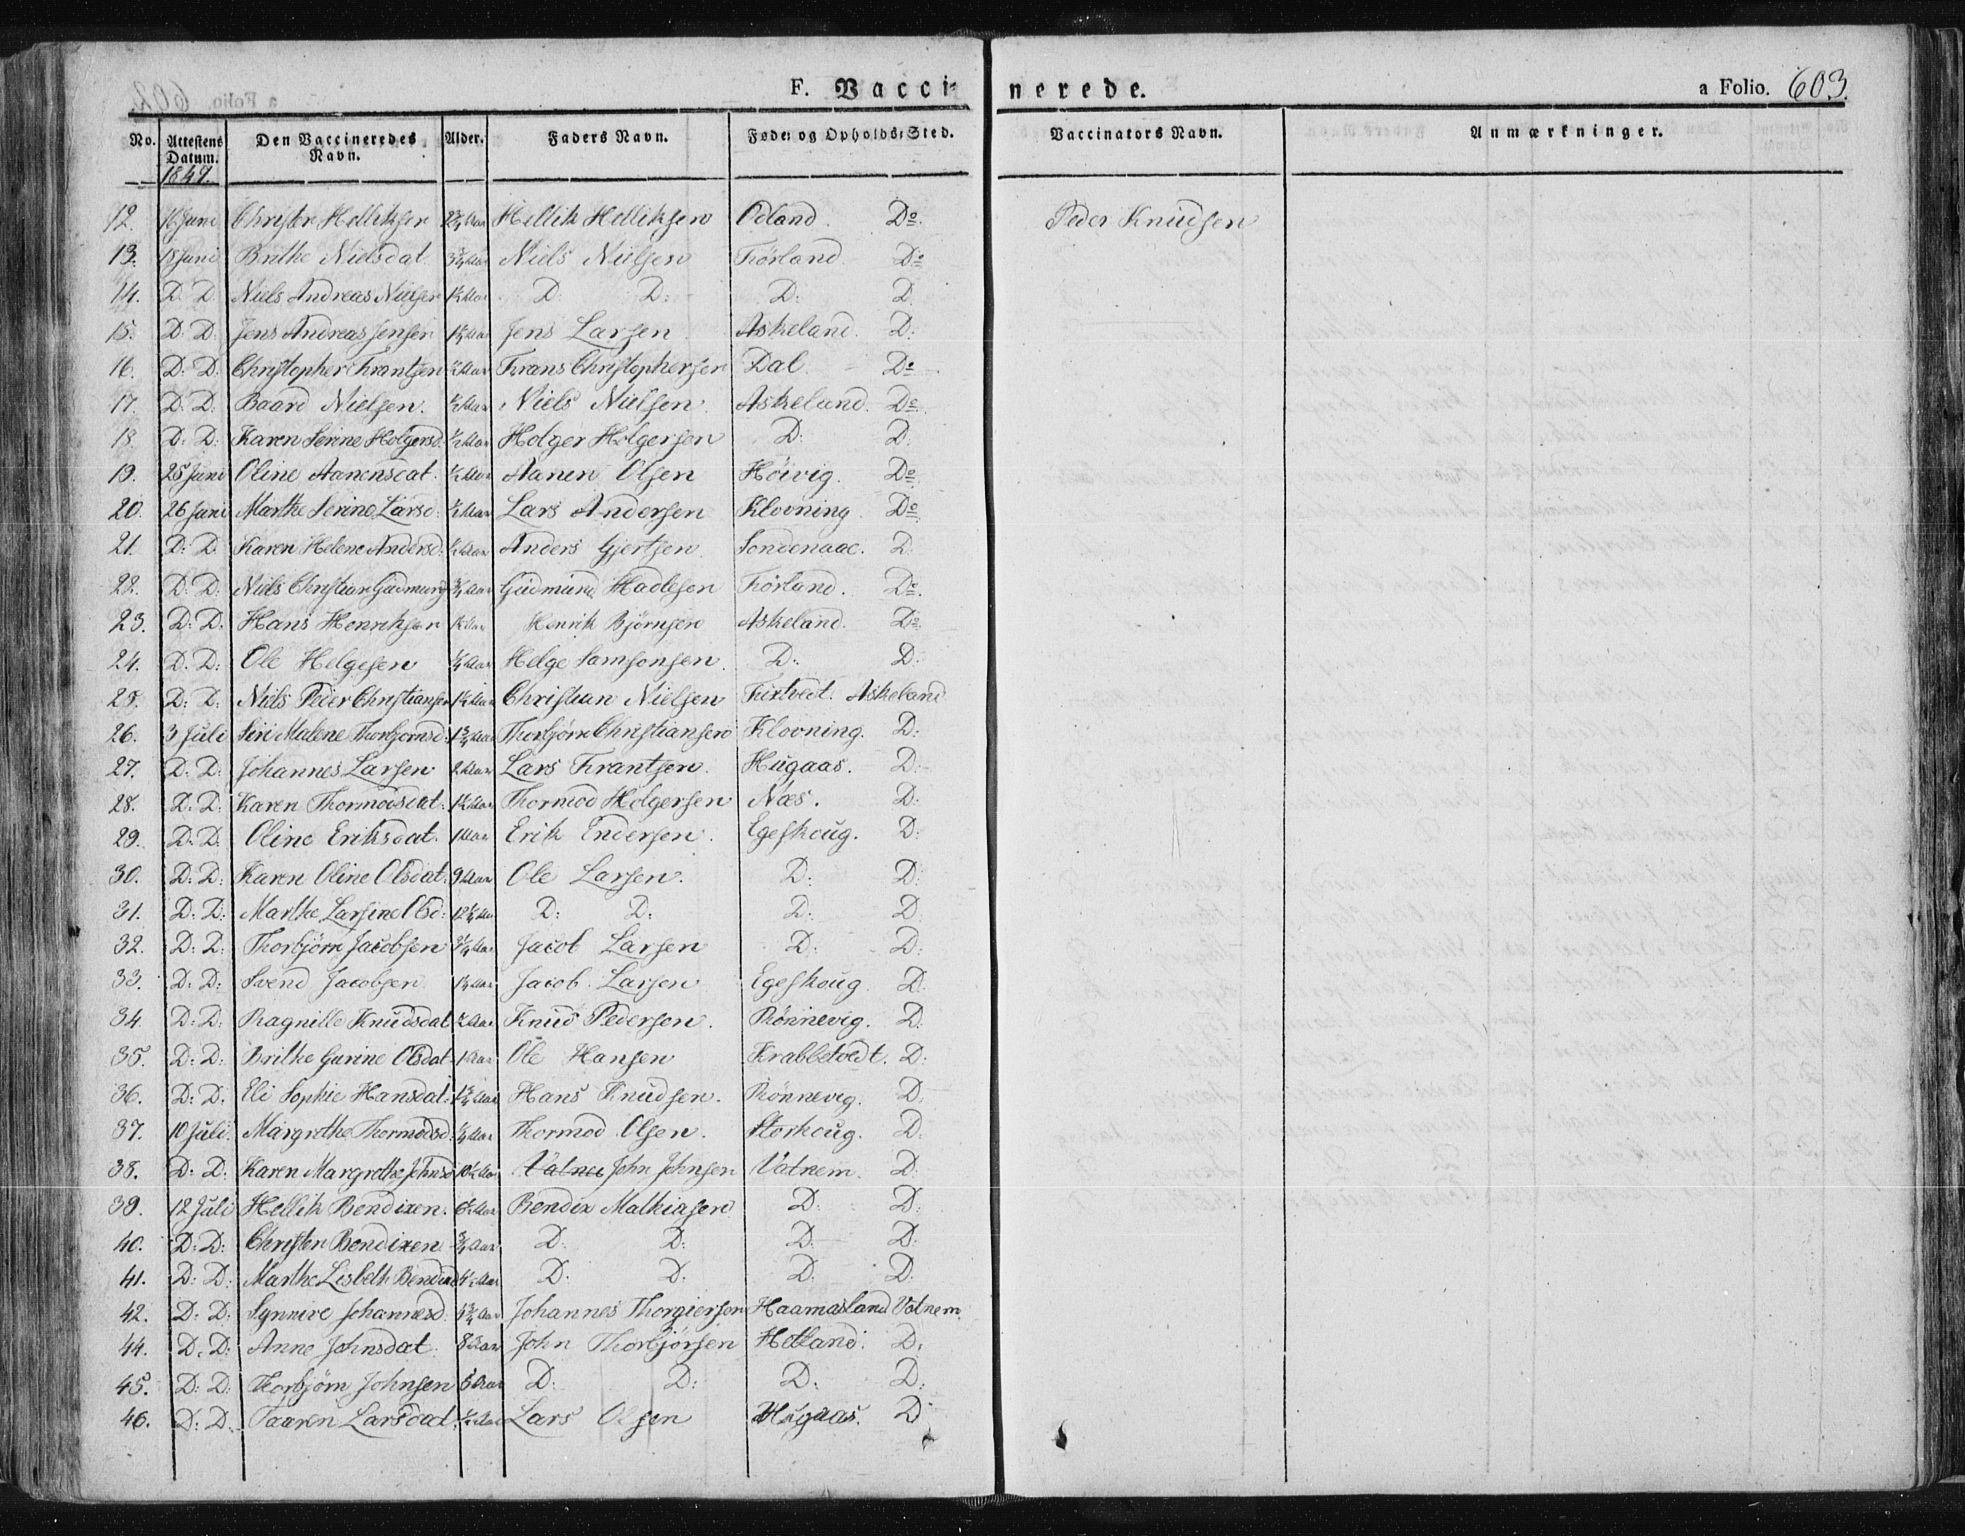 F. Vaccinerede. a Folio. 603.
No. Attestens Datum. Den Vaccineredes Navn. Alder. Faders Navn. Føde- og Opholds-Sted. Vaccinators Navn. Anmærkninger.
1849.
12. 16 Juni Christen Helliksen Aar Hellik Helliksen Odland. Do. Peder Knudsen
13. 18 Juni Brithe Nielsdat Aar Niels Nielsen Førland Do
14. D: D: Niels Andreas Nielsen Aar D: D: D: D
15. D: D: Jens Andreas Jensen Aar Jens Larsen Askeland. D:
16. D: D: Christopher Frantzen Aar Frans Christophersen Dal Do
17. D: D: Baard Nielsen. Aar Niels Nielsen Askeland. Do
18 D: D: Karen Serine Holgersd. ½ Aar Holger Holgersen D: D.
19. 25 Juni Oline Aanensdat. Aar Aanen Olsen Höivig. Do
20. 26 Juni Marthe Serine Larsd. Aar Lars Andersen Klovning Do
21. D: D. Karen Helene Andersd. Aar Anders Gjertsen Sondenaae. D.
22. D: D: Niels Christian Gudmunds Aar Gudmund Hadlesen Förland. Do.
23. D: D. Hans Henriksen Aar Henrik Björnsen Askeland. Do
24. D. D: Ole Helgesen Aar Helge Samsonsen D: D:
25. D: D: Niels Peder Christiansen Aar Christian Nielsen Askeland
26. 3 Juli Siri Malene Thorbjornsd. 1¾ Aar Thorbjørn Christiansen Klovning. D:
27. D: D: Johannes Larsen 2 Aar Lars Frantzen. Hugaas. D:
28. D: D: Karen Thormodsdat. Aar Thormod Holgersen Næs. D:
29. D: D: Oline Eriksdat. 1 Aar Erik Endersen. Egeskoug. D:
30. D: D: Karen Oline Olsdat. 9 Aar Ole Larsen. D: D:
31. D: D: Marthe Larsine Olsd: Aar D: D: D: D:
32. D: D: Thorbjørn Jacobsen Aar Jacob Larsen D: D:
33. D: D: Svend Jacobsen Aar Jacob Larsen Egeskoug D.
34. D: D: Ragnille Knudsdat Aar Knud Pedersen. Rönnevig. D.
35. D: D: Brithe Gurine Olsdat 1 Aar Ole Hansen Krabbetvedt. D:
36. D: D. Eli Sophie Hansdat. Aar Hans Knudsen. Rönnevig. D.
37. 10 Juli. Margrethe Thormodsd. Aar Thormod Olsen. Storkoug. D.
38. D: D. Karen Margrethe Johnsd. 10½ Aar John Johnsen Vatnem. D.
39. 12 Juli Hellik Bendixen. Aar Bendix Mathiasen D: D:
40. D: D: Christen Bendixen. Aar D: D: D: D:
41. D: D: Marthe Lisbeth Bendixd Aar D: D: D: D:
42. D: D: Synnive Johannesd. Aar Johannes Thorgiersen Haamasland Vatnem.
44. D: D: Anne Johnsdat. 8 Aar John Thorbjörsen Hetland. D.
45. D: D. Thorbjørn Johnsen Aar D: D: D: D:
46. D: D. Taaren Larsdat. Aar Lars Olsen Hugaas. D